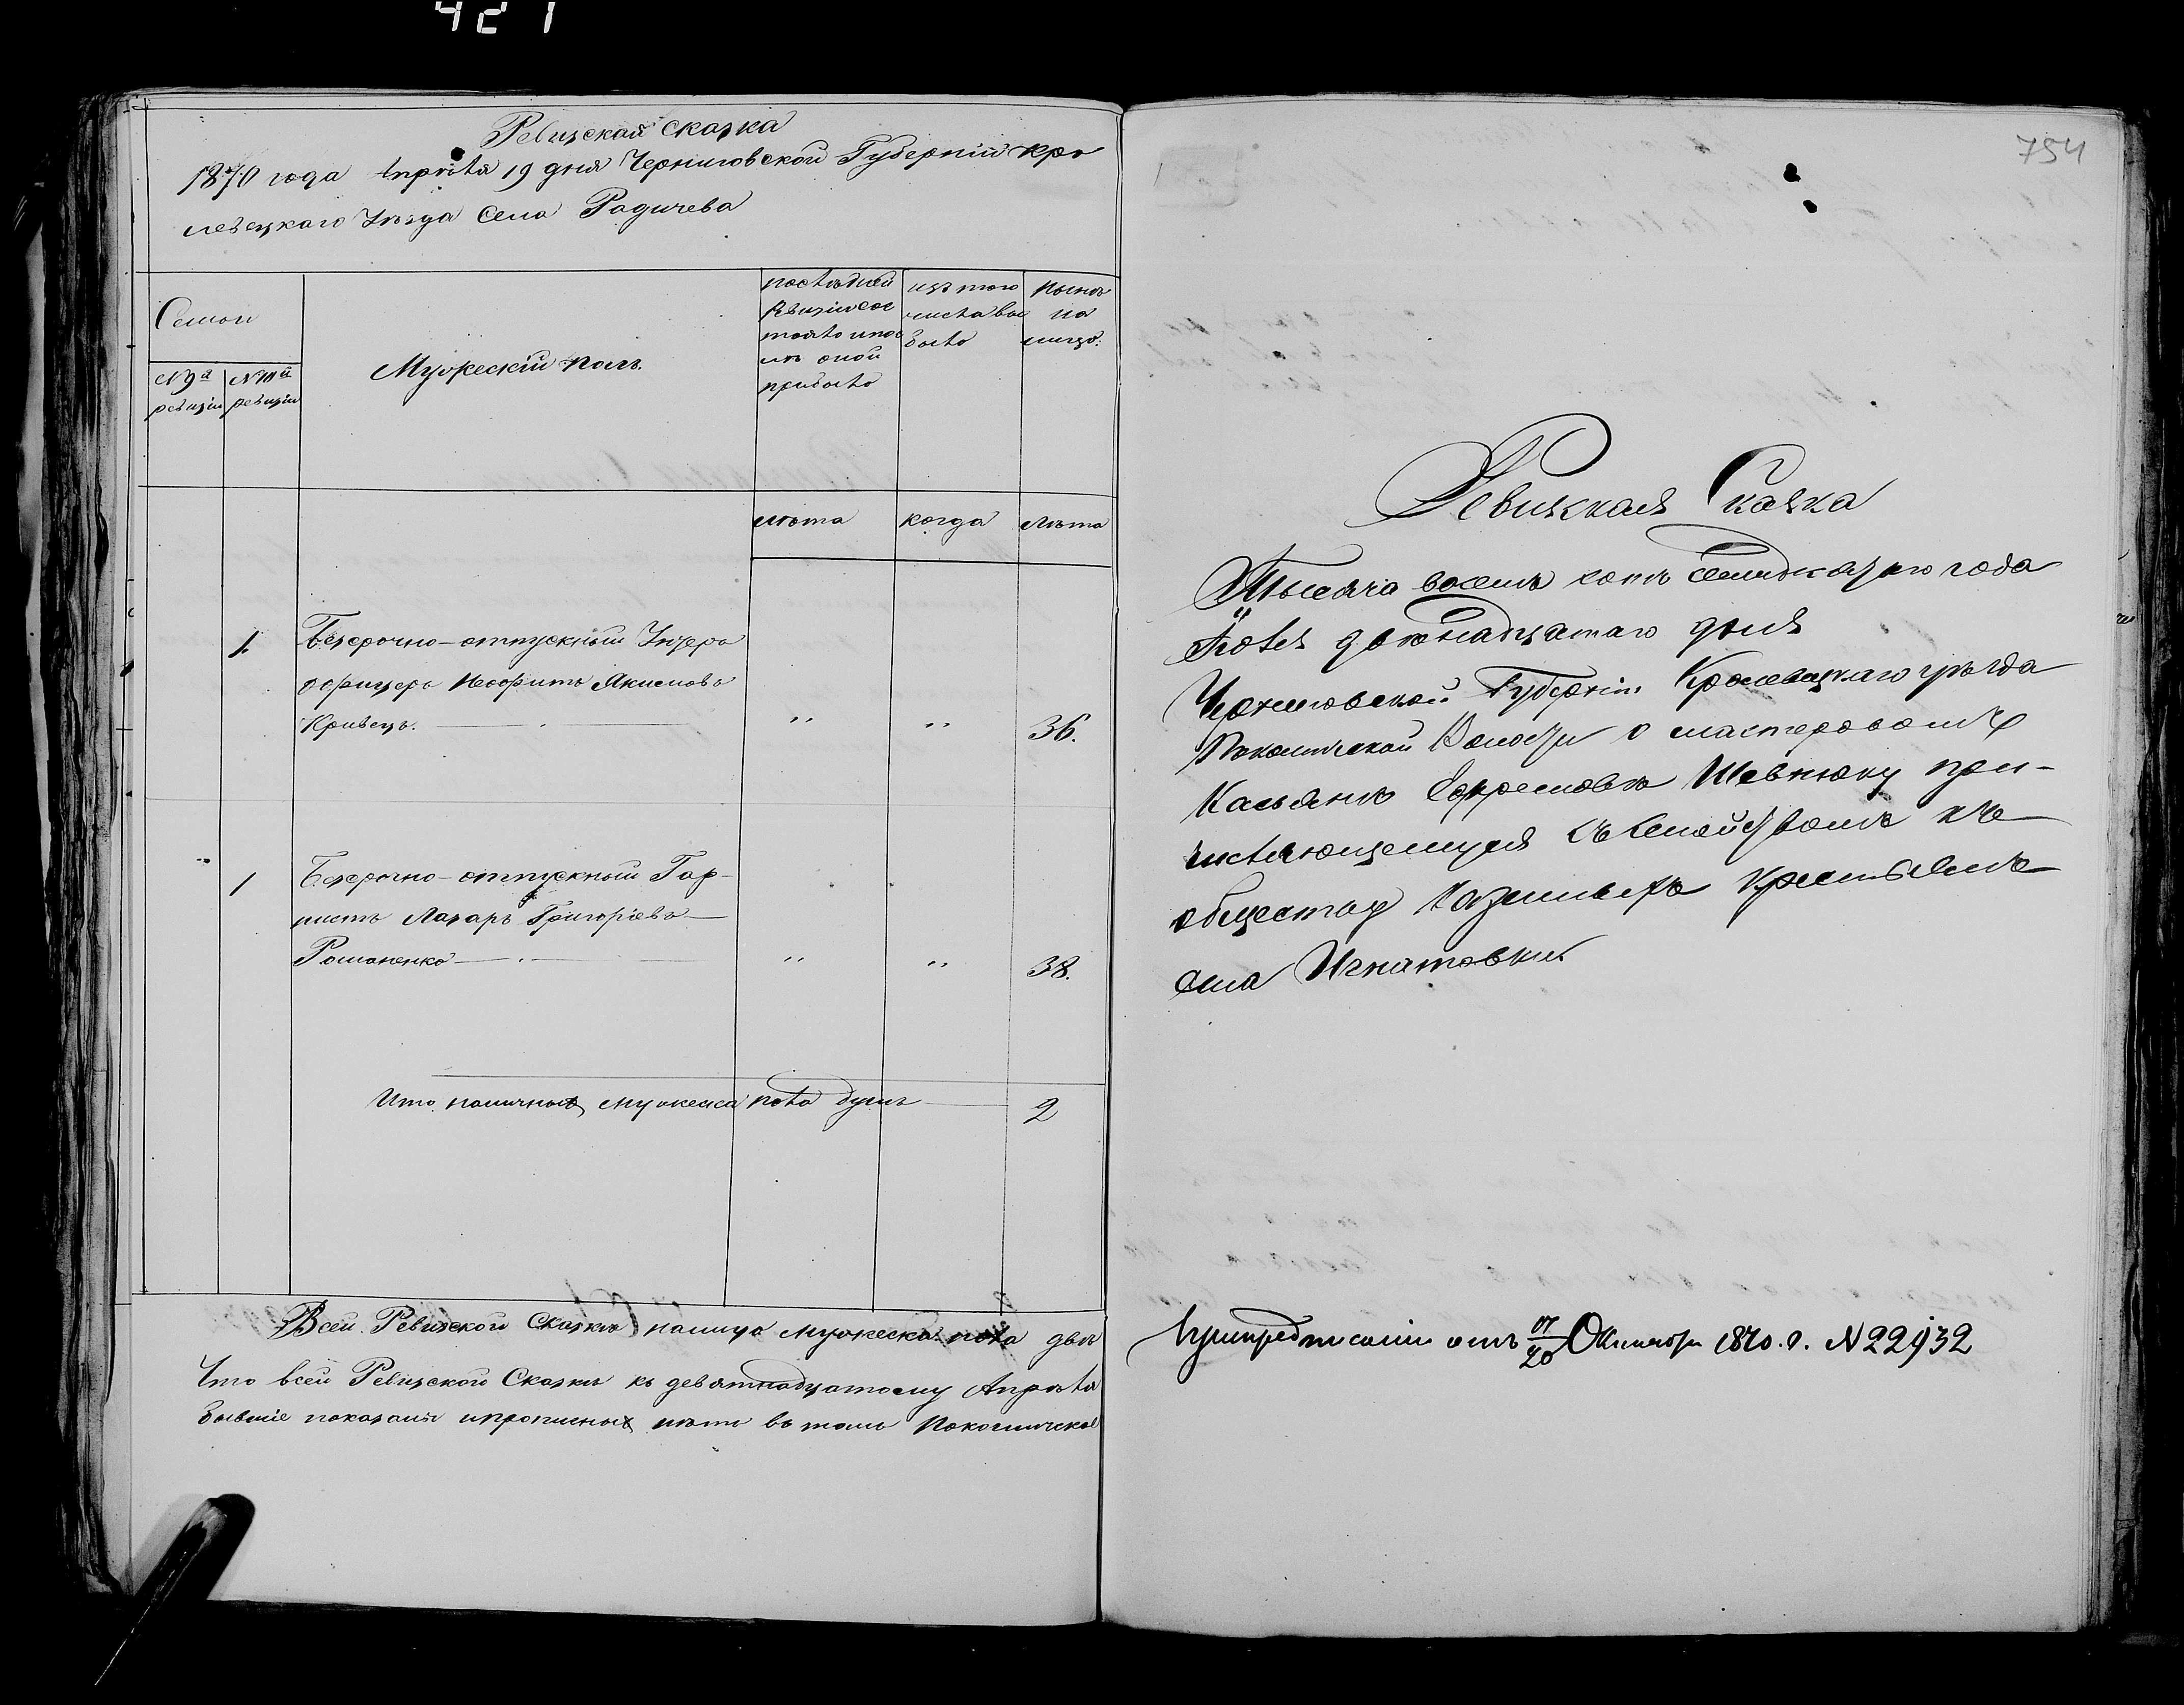 421
Ревизская Сказка
1870 года Апреля 19 дня Черниговской Губернии Кро
левецкаго Уезда Села Радичева
Семьи
№ 9й
ревизии
№ 10й
ревизии
Мужеский полъ.
последней
Ревизии сос
тояло и пос
ле оной
прибыло
изъ того
числа вы
было
Ныне
на
лицо.
лета
когда
лета
1. Безсрочно-отпускный Унтеръ
офицеръ Неофитъ Якимовъ
Кривецъ. — " " 36.
1 Безсрочно-отпускный Гор-
нистъ Лазарь Григорьевъ —
Романенко — " " 38.
Итого наличныхъ мужеска пола душъ — 2
Всей Ревизской Сказке налицо мужеска пола две
Что всей Ревизской Сказке къ девятнадцатому Апреля
бывшие показаны и прописныхъ нетъ въ томъ Покошическое
754
Ревизская Сказка
Тысяча восемь сотъ семидесятаго года
Іюля девятнадцатаго дня
Черниговской Губерніи Кролевецкаго уезда
Покошической Волости о мастеровомъ
Касьяне Ефремове Шевнюку при-
числяющемуся съ Семействомъ къ
обществу Казенныхъ Крестьянъ
села Игнатовки
При предписании отъ 17/20 Октября 1870. г. № 22932